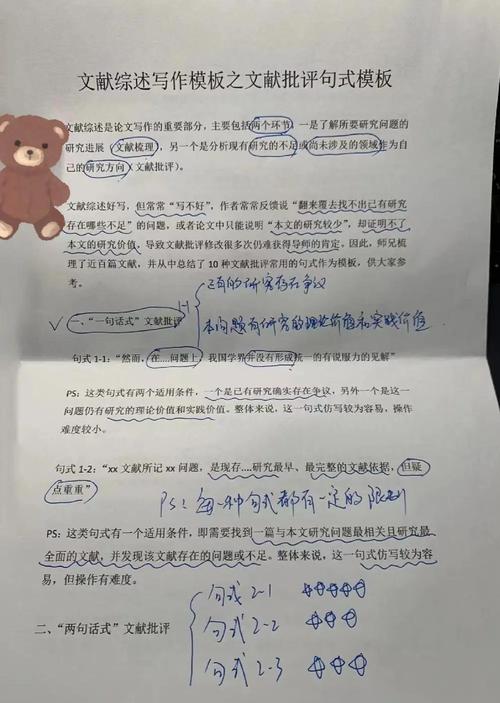 文献综述写作模板之文献批评句式模板
文献综述是论文写作的重要部分，主要包括两个环节，一是了解所要研究问题的
研究进展（文献梳理），另一个是分析现有研究的不足或尚未涉及的领域作为自
己的研究方向（文献批评）。
文献综述好写，但常常“写不好”，作者常常反馈说“翻来覆去找不出已有研究
存在哪些不足”的问题，或者论文中只能说明“本文的研究较少”，却证明不了
本文的研究价值，导致文献批评修改很多次仍难获得导师的肯定。因此，师兄梳
理了近百篇文献，并从中总结了 10 种文献批评常用的句式作为模板，供大家参
考。
已有的研究存在争议
1-1
一、“一句话式”文献批评
本问题有研究的理论价值和实践价值
句式 1-1：“然而，在....问题上，我国学界并没有形成统一的有说服力的见解”
PS：这类句式有两个适用条件，一个是已有研究确实存在争议，另外一个是这一
问题仍有研究的理论价值和实践价值。整体来说，这一句式仿写较为容易，操作
难度较小。
句式 1-2：“xx 文献所记 xx 问题，是现存....研究最早、最完整的文献依据，但疑
点重重”
PS：每一种句式都有一定的限制
PS：这类句式有一个适用条件，即需要找到一篇与本文研究问题最相关且研究最
全面的文献，并发现该文献存在的问题或不足。整体来说，这一句式仿写较为容
易，但操作有难度。
句式2-1
二、“两句话式”文献批评
句式2-2
句式2-3